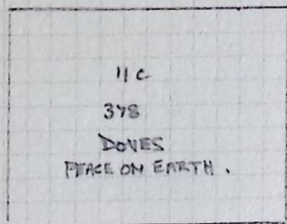 11c
378
DOVES
PEACE ON EARTH.